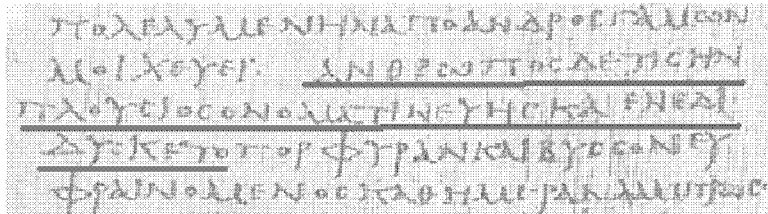 ΠΟΛΕΛΥΜΕΝΗΝΑΠΟΑΝΔΡΟCΓΑΜΩΝ
ΜΟΙΧΕΥΕΙ· ΑΝΘΡΩΠΟCΔΕΤΙCΗΝ
ΠΛΟΥCΙΟCΟΝΟΜΑΤΙΝΕΥΗCΚΑΙΕΝΕΔΙ
ΔΥCΚΕΤΟΠΟΡΦΥΡΑΝΚΑΙΒΥCCΟΝΕΥ
ΦΡΑΙΝΟΜΕΝΟCΚΑΘΗΜΕΡΑΝΛΑΜΠΡΩC